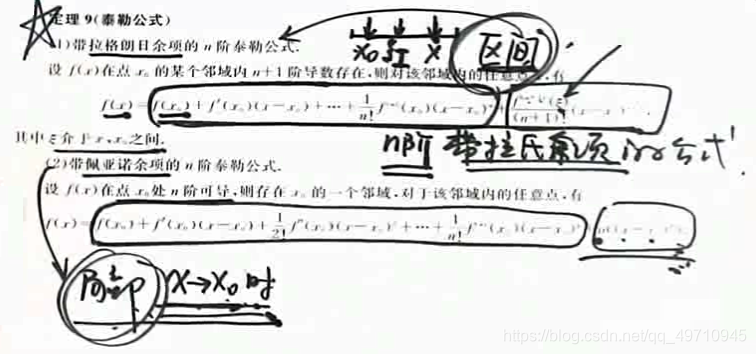 定理9(泰勒公式)
(1)带拉格朗日余项的n阶泰勒公式.
x₀ ξ x 区间
设 f(x)在点 x₀ 的某个邻域内 n+1 阶导数存在,则对该邻域内的任意点 有
f(x)=f(x₀)+f′(x₀)(x−x₀)+⋯+1/n! f⁽ⁿ⁾(x₀)(x−x₀)ⁿ+f⁽ⁿ⁺¹⁾(ξ)/(n+1)! (x−x₀)
其中 ξ 介于 x,x₀ 之间.
n阶 带拉氏余项
(2)带佩亚诺余项的 n 阶泰勒公式.
设 f(x)在点 x₀ 处 n 阶可导,则存在 x₀ 的一个邻域,对于该邻域内的任意点,有
f(x)=f(x₀)+f′(x₀)(x−x₀)+1/2! f″(x₀)(x−x₀)²+⋯+1/n! f⁽ⁿ⁾(x₀)(x−x₀)ⁿ
x→x₀ 时
https://blog.csdn.net/qq_49710945